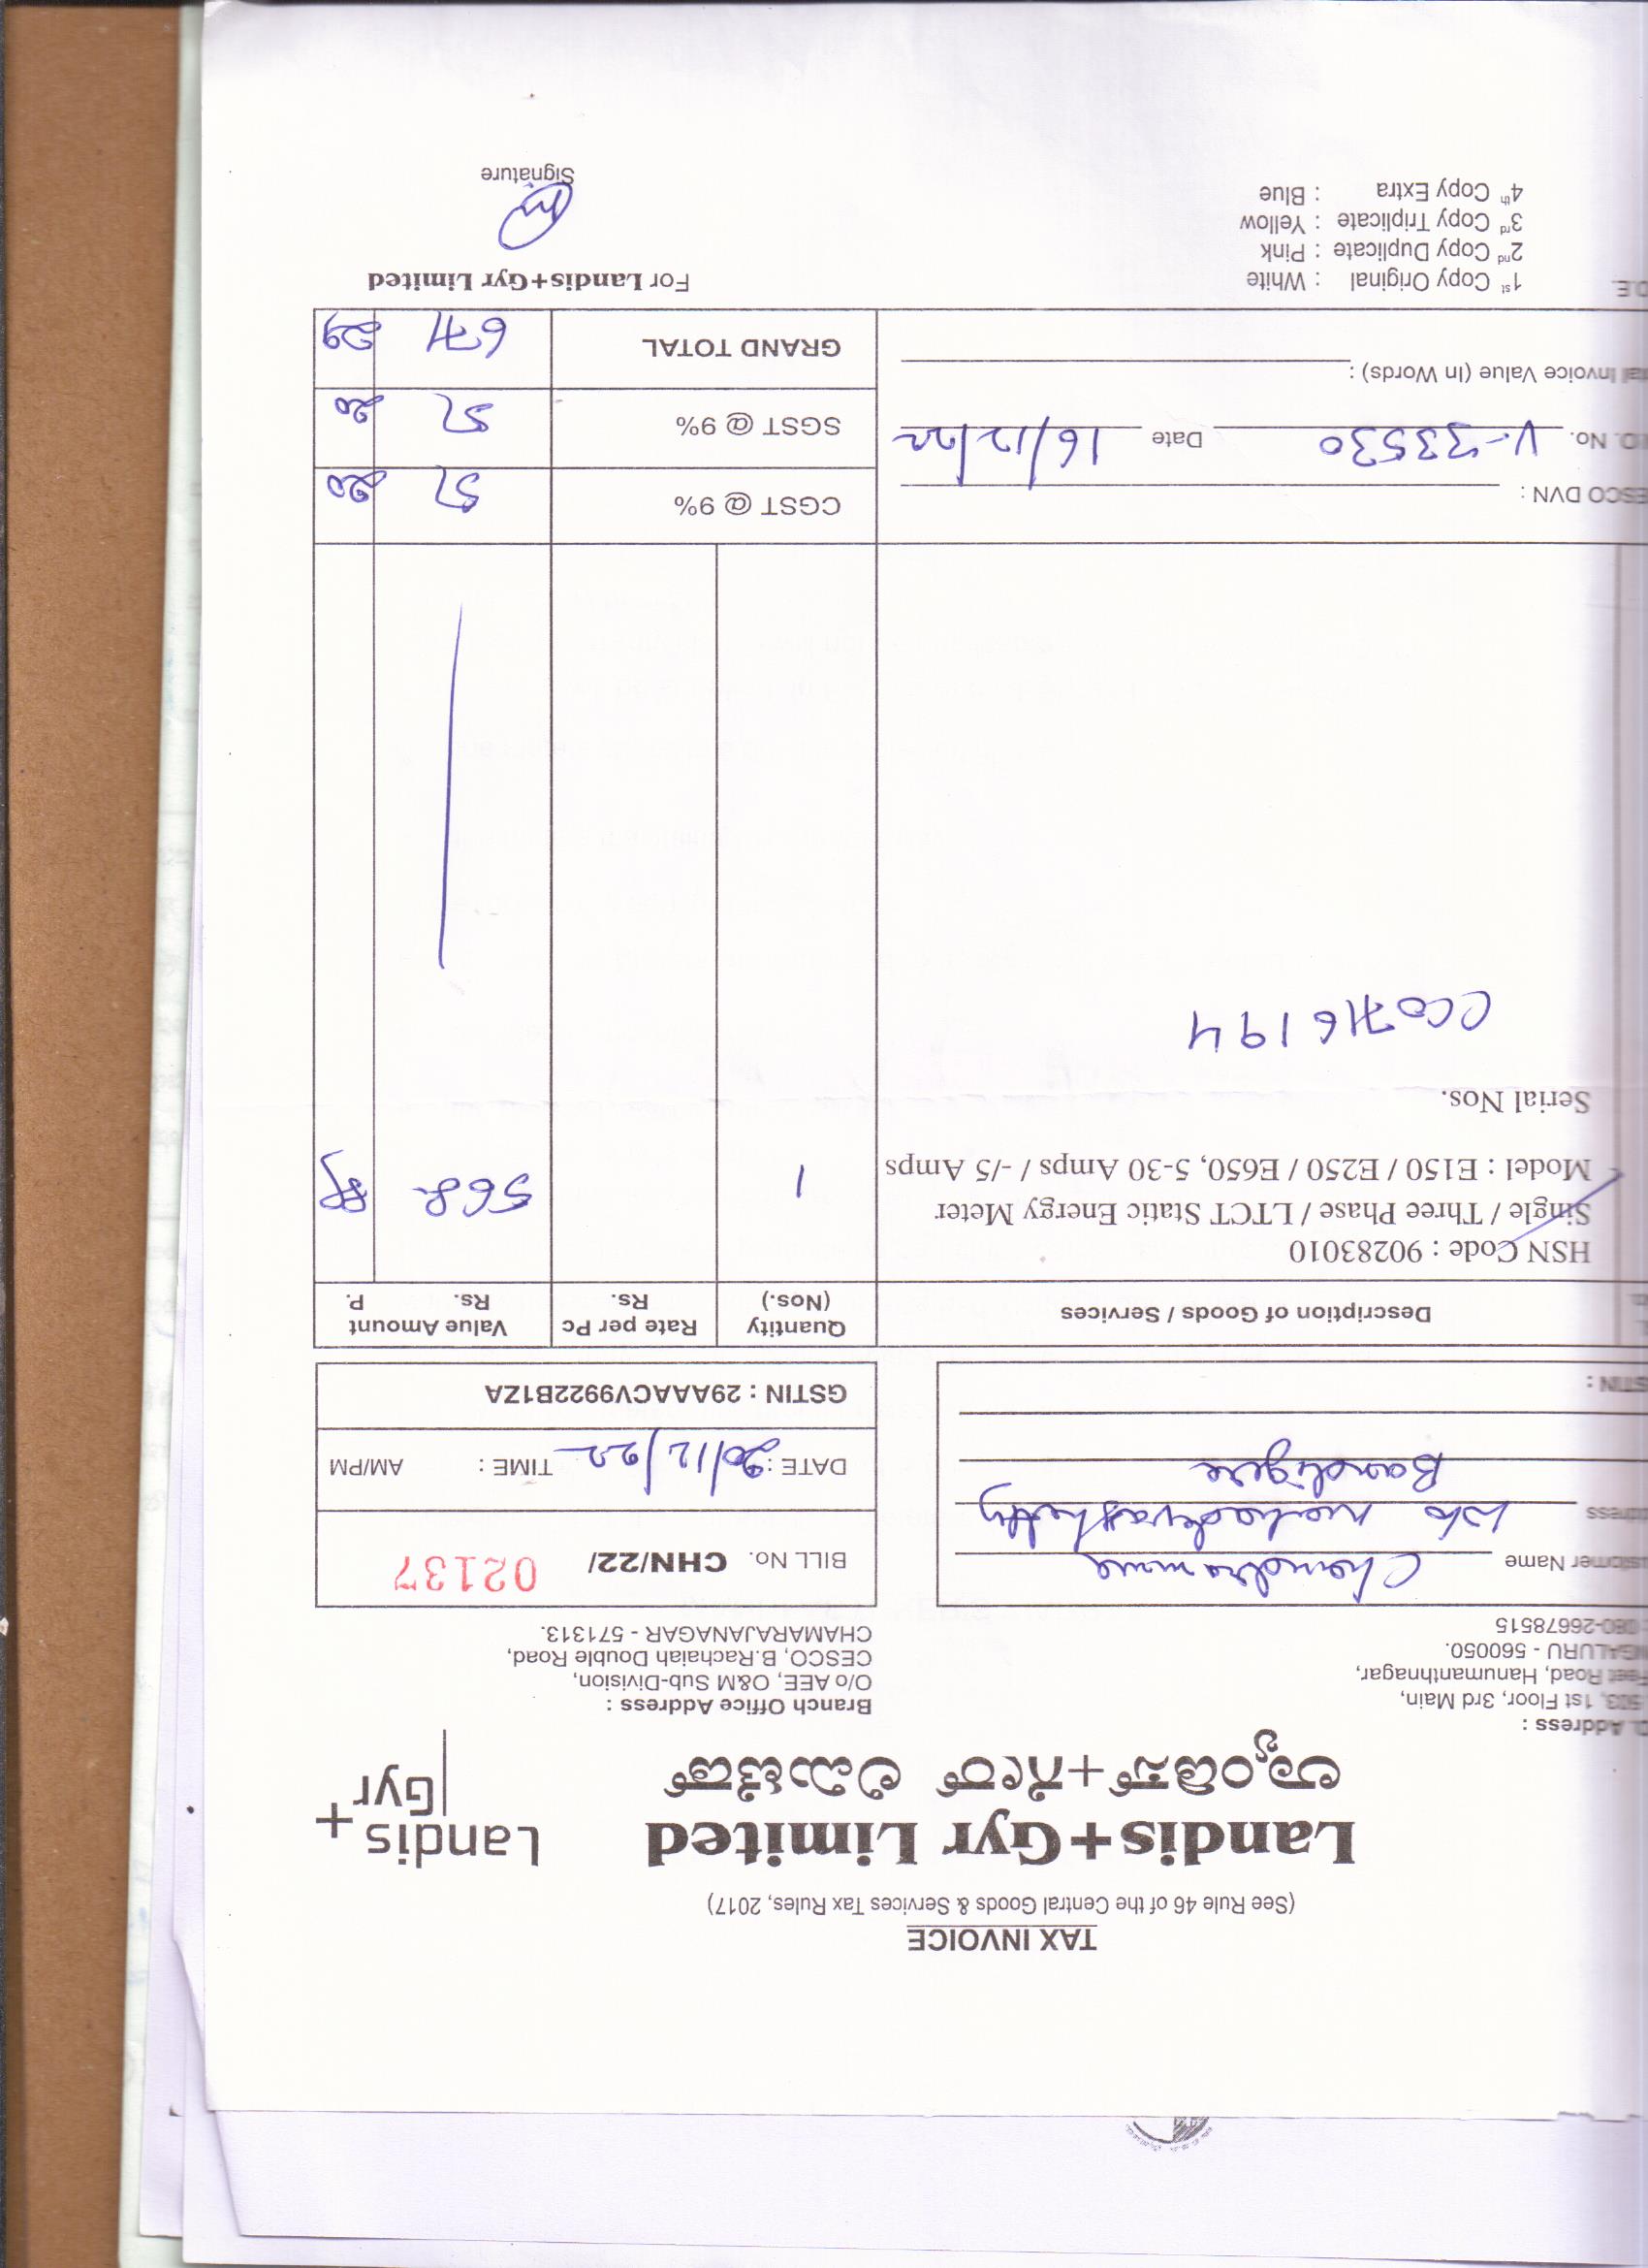 TAX INVOICE
(See Rule 46 of the Central Goods & Services Tax Rules, 2017)
Landis+Gyr Limited
ಲ್ಯಾಂಡಿಸ್+ಗೇರ್ ಲಿಮಿಟೆಡ್
Landis+
Gyr
. Address :
503, 1st Floor, 3rd Main,
Feet Road, Hanumanthnagar,
NGALURU - 560050.
: 080-26678515
Branch Office Address :
O/o AEE, O&M Sub-Division,
CESCO, B.Rachaiah Double Road,
CHAMARAJANAGAR - 571313.
ustomer Name Chandramma
dress w/o mahadevashetty
Bandigere
STIN :
BILL No. CHN/22/ 02137
DATE : 20/12/22 TIME : AM/PM
GSTIN : 29AAACV9922B1ZA
Description of Goods / Services Quantity (Nos.) Rate per Pc Rs. Value Amount Rs. P.
HSN Code : 90283010
Single / Three Phase / LTCT Static Energy Meter
Model : E150 / E250 / E650, 5-30 Amps / -/5 Amps
1 568
Serial Nos.
CC0716194
ESCO DVN :
CGST @ 9% 51 20
O. No. V-33530 Date 16/12/22
SGST @ 9% 51 20
tal Invoice Value (In Words) :
GRAND TOTAL 671 29
O.E.
1st Copy Original : White
2nd Copy Duplicate : Pink
3rd Copy Triplicate : Yellow
4th Copy Extra : Blue
For Landis+Gyr Limited
Signature